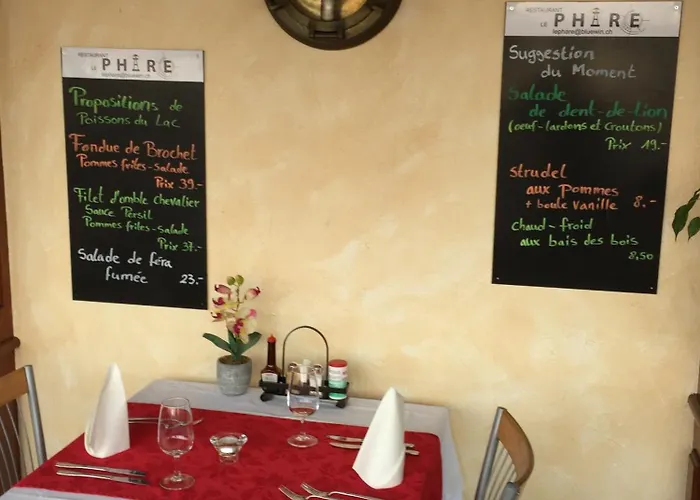 RESTAURANT
LE PHARE
lephare@bluewin.ch
Propositions de
Poissons du Lac
Fondue de Brochet
Pommes frites-salade
Prix 39.-
Filet d'omble chevalier
Sauce Persil
Pommes frites-salade
Prix 37.-
Salade de féra
fumée 23.-
RESTAURANT
LE PHARE
lephare@bluewin.ch
Suggestion
du Moment
Salade
de dent-de-lion
(oeuf-lardons et Croutons)
Prix 19.-
strudel
aux Pommes
+ boule Vanille 8.-
chaud-froid
aux bais des bois
8,50